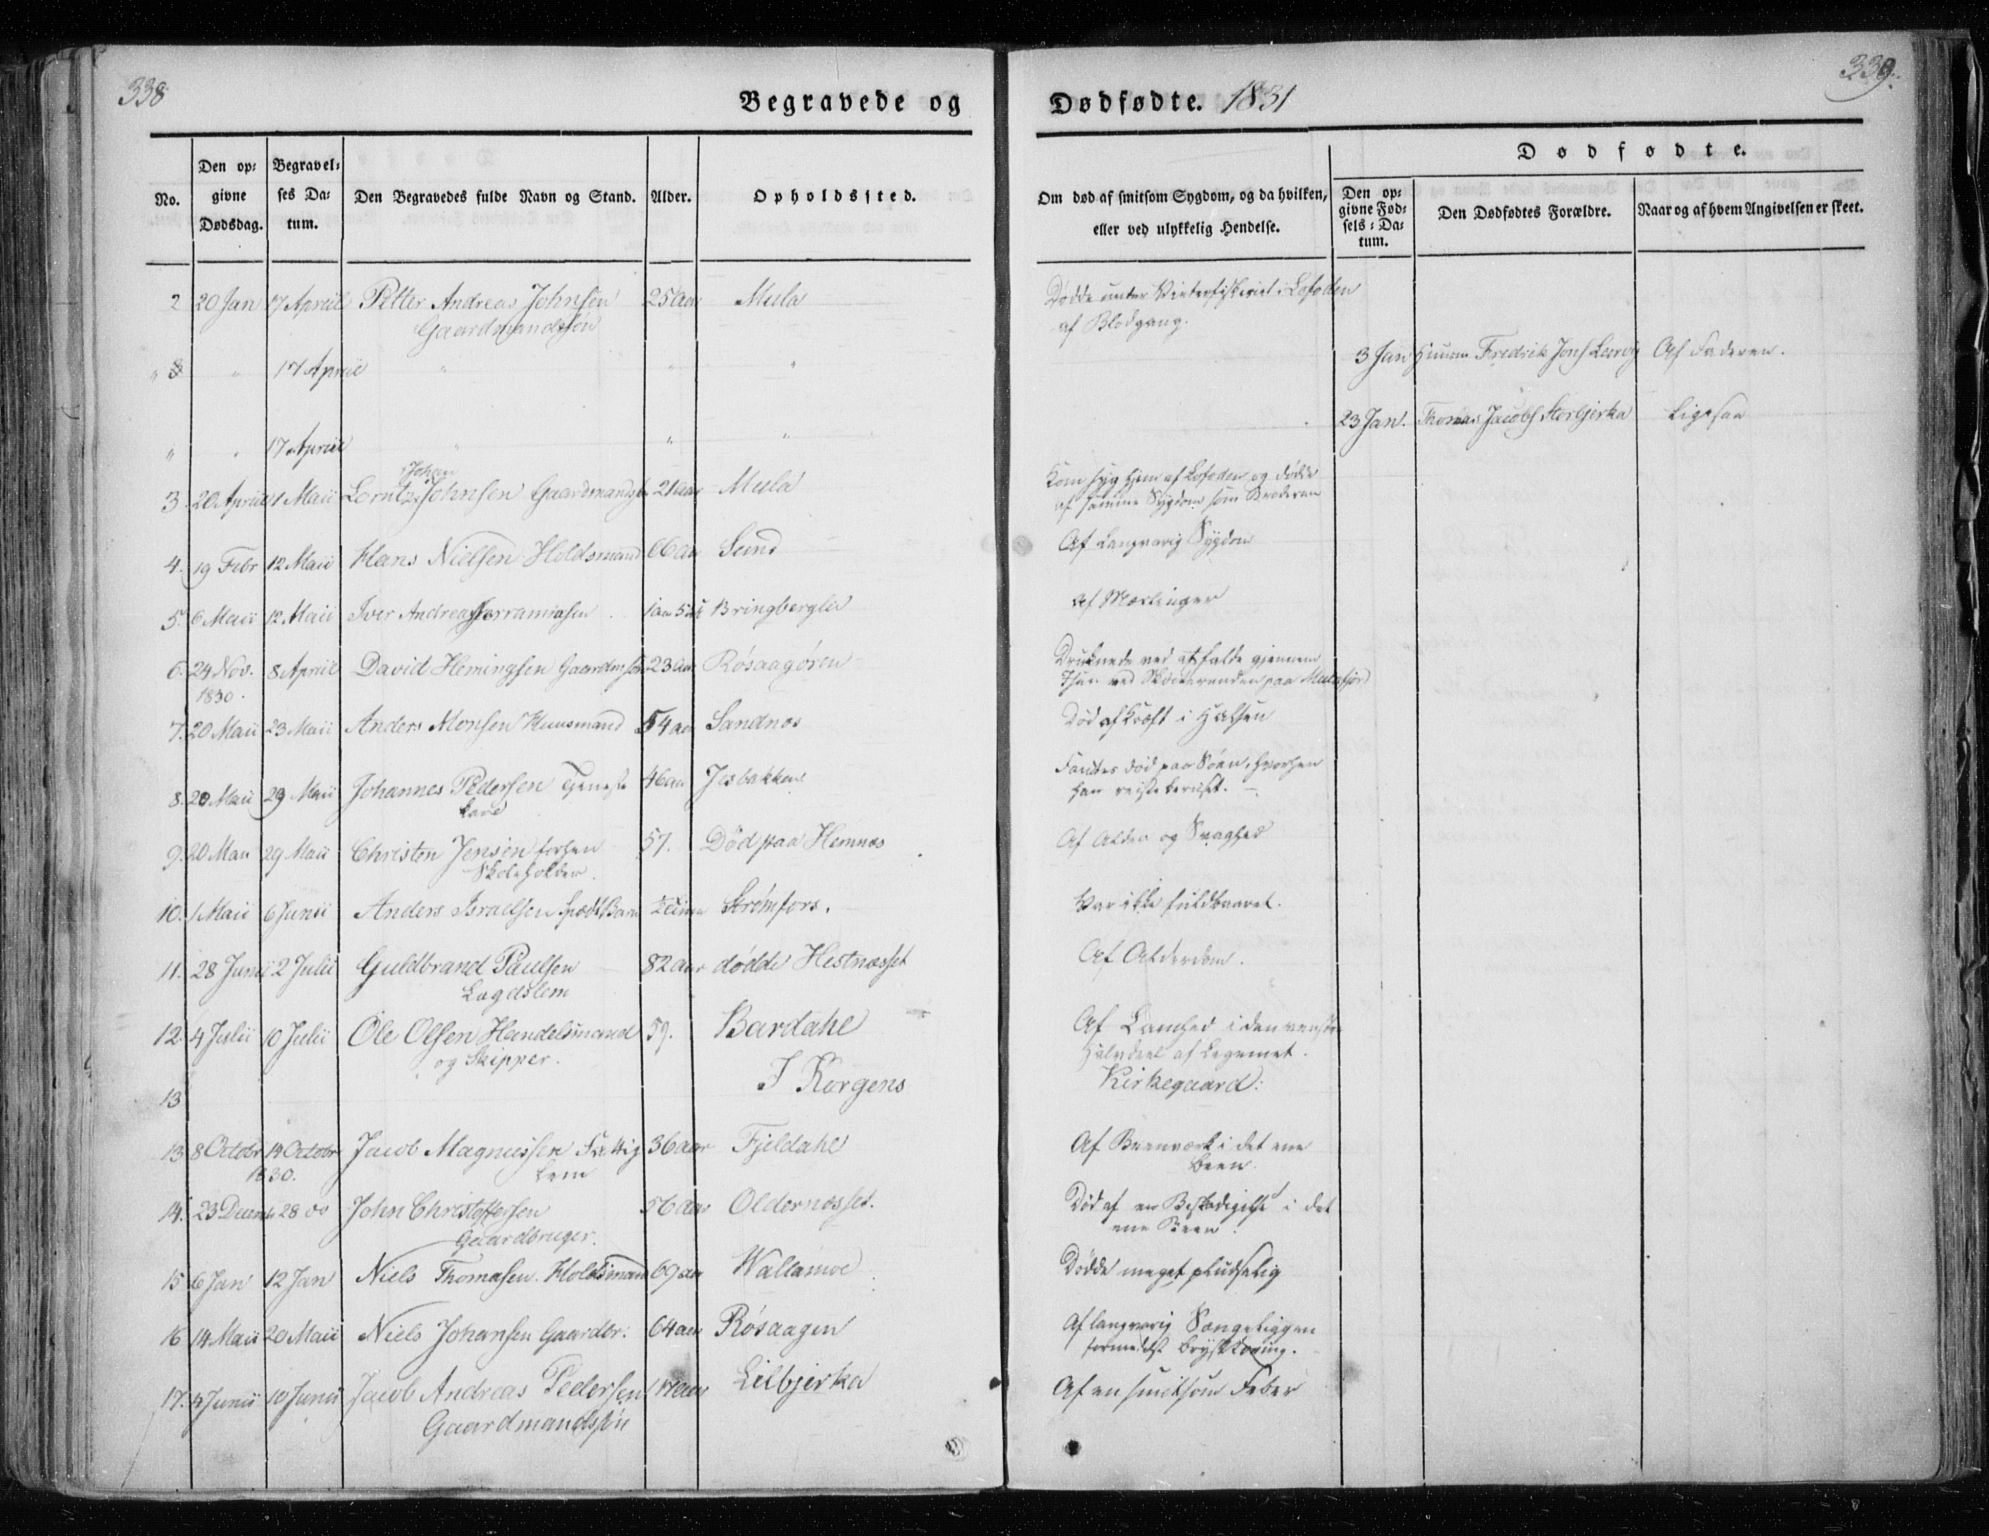 338
339.
Begravede og Dødfødte. 1831
No.
Den opgivne Dødsdag.
Begravelses Datum.
Den Begravedes fulde Navn og Stand.
Alder.
Opholdssted.
Om død af smitsom Sygdom, og da hvilken, eller ved ulykkelig Hendelse.
Dødfødte.
Den opgivne Fødsels-Datum.
Den Dødfødtes Forældre.
Naar og af hvem Angivelsen er skeet.
2 20 Jan 17 Apriil Petter Andreas Johnsen 25 Aar Mula Dødde under Vinterfiskeriet i Lofoden
Gaardmandssøn af Blodgang.
" " 17 Apriil " " " 3 Jan Fredrik Af Faderen.
" " 17 Apriil " " " 23 Jan. Thomas Jacobs Storbjerka Ligesaa
Johan
3 20 Apriil 1 Maii Lorntz Johnsen Gaardmands 21 aar Mula Kom syg hjem af Lofoden og dødde
af samme Sygdom som Broderen
4. 19 Febr 12 Maii Hans Nielsen Holdsmand 66 aar Sund Af Langvarig Sygdom
5. 6 Maii 12 Maii Iver Andreas Jerramiasen Bringberglie Af Mæslinger
6. 24 Nov. 8 Apriil David Hemingsen Gaardm. 23 aar Røsaagøren Druknede ved at falde gjennem
1830. Isen ved paa Mulafjord
7. 20 Maii 23 Maii Anders Monsen Huusmand 54 aar Sandnæs Død af Kræft i Halsen
8. 20 Maii 29 Maii Johannes Pedersen Tjeneste 46 aar Jesbakken Fandtes død paa Søen, hvorhen
karl han reiste beruset.
9. 20 Maii 29 Maii Christen Jensen forhen 57. Død paa Hemnæs Af Alder og Svaghed
Skoleholder.
10. 1 Maii 6 Junii Anders Israelsen Spædt Barn ½ time Strømfors. Var ikke fuldbaaret.
11. 28 Junii 2 Julii Guldbrand Paulsen 82 aar dødde Hestnæsset Af Alderdom.
Lægdslem
12. 4 Julii 10 Julii Ole Olsen Handelsmand 59. Bardahl Af Lamhed i den venstre
og Skipper. Halvdeel af Legemet.
13 I Korgens Kirkegaard:
13 8 Octobr 14 Octobr Jacob Magnussen Fattig 36 aar Fjeldahl Af Beenværk i det ene
1830. Lem Been.
14. 23 Decemb 28 do John Christophersen 56 Aar Oldernæsset. Død af en Beskadigelse i det
Gaardbruger. ene Been.
15 6 Jan 12 Jan Niels Thomasen Holdsmand 69 aar Wallamoe Dødde meget pludselig
16 14 Maii 20 Maii Niels Johansen Gaardbr: 64 aar Røsaagen Af langvarig Sængeliggen
formedelst
17. 4 Junii 10 Junii Jacob Andreas Pedersen 17 aar Lilbjerka Af en smitsom Feber
Gaardmandssøn